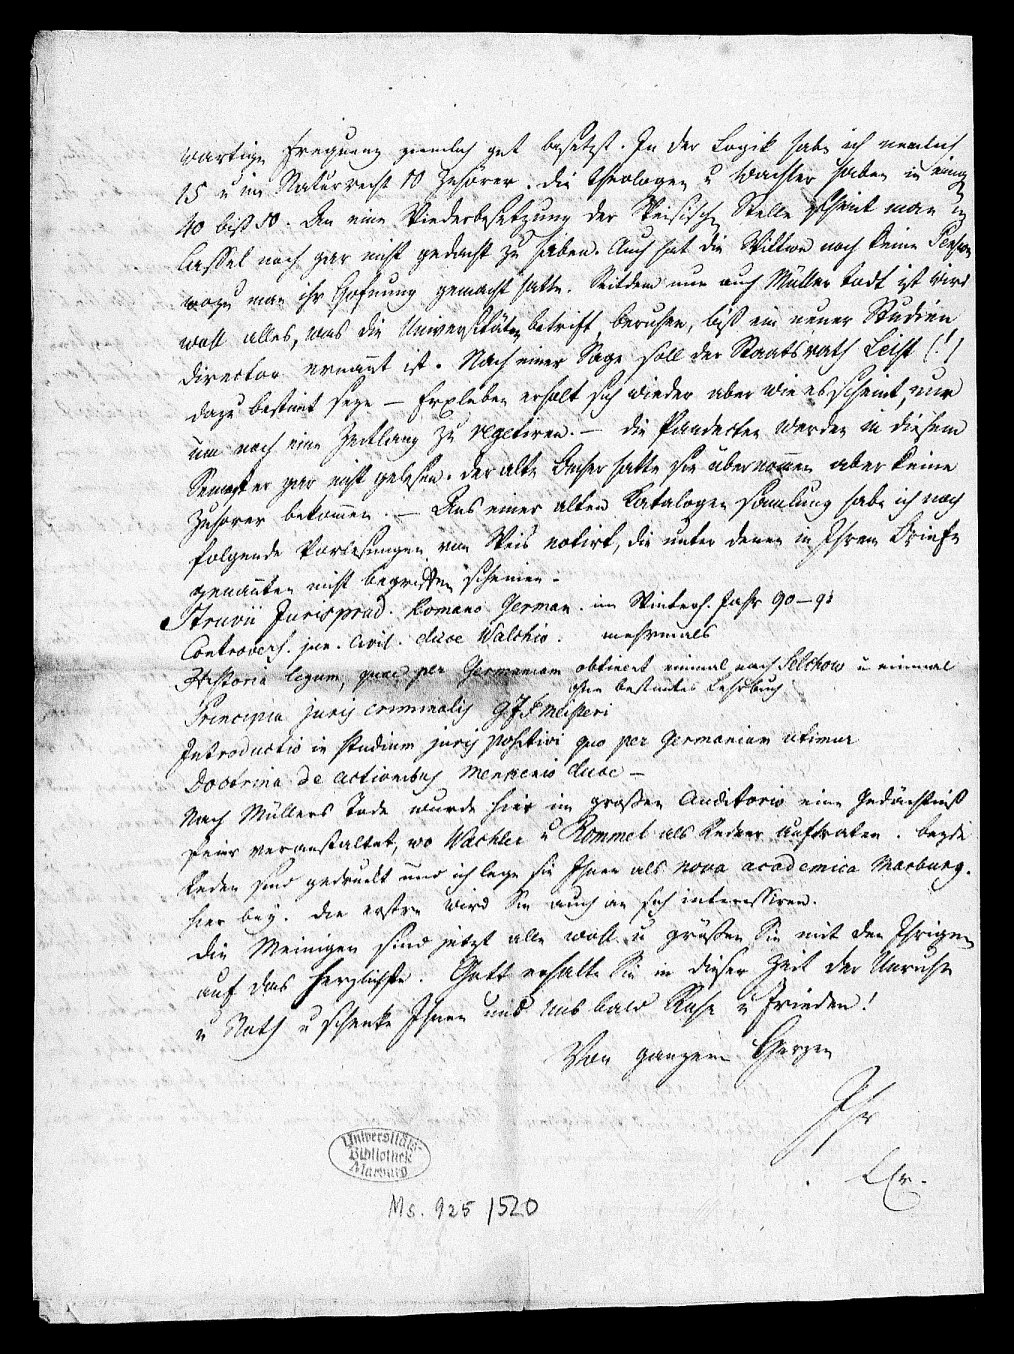 wärtige Frequenz ziemlich gut besetzt. In der Logik habe ich nemlich
15 u im Naturrecht 50 Zuhörer. Die Theologen u Wachler haben in einig
40 biß 50. An eine Wiederbesetzung der Weisischen Stelle scheint man in
Cassel noch gar nicht gedacht zu haben. Auch hat die Wittwe noch keine Pension
wozu man ihr Hofnung gemacht hatte. Seitdem nun auch Müller todt ist wird
wohl alles, was die Universitäten betrift, beruhen, biß ein neuer Studien
director ernannt ist. Nach einer Sage soll der Staatsrath Leist (!)
dazu bestimt seyn — Erxleben erholt sich wieder aber wie es scheint, nur
um noch eine Zeitlang zu vegetiren. — Die Pandecten werden in diesem
Semester gar nicht gelesen. Der alte Bucher hatte sie übernommen aber keine
Zuhörer bekommen. — Aus einer alten Katalogen samlung habe ich noch
folgende Vorlesungen von Weis notirt, die unter denen in Ihrem Briefe
genannten nicht begriffen scheinen.
Struvii Jurisprud. Romano German. im Winterh. Jahr 90–91
Controvers. jur. civil. duce Walchio. mehrmals
Historia legum, quae per Germaniam obtinent einmal nach Selchow u einmal
ohne bestimtes Lehrbuch
Principia juris criminalis GJF Meisteri
Introductio in studium juris positivi quo per Germaniam utimur
Doctrina de actionibus Menkenio duce —
Nach Müllers Tode wurde hier im großen Auditorio eine Gedächtniß
feier veranstaltet, wo Wachler u Rommel als Redner auftraten. beyde
Reden sind gedruckt und ich lege sie Ihnen als nova academica Marburg.
hier bey. Die erstre wird Sie auch an sich interessiren.
Die Meinigen sind jetzt alle wohl u grüßen Sie mit den Ihrigen
auf das herzlichste. Gott erhalte Sie in dieser Zeit der Unruhe
u Noth u schenke Ihnen und uns bald Ruhe u Frieden!
Von ganzem Herzen
Ihr
Cr.
Universitäts-
Bibliothek
Marburg
Ms. 925/520